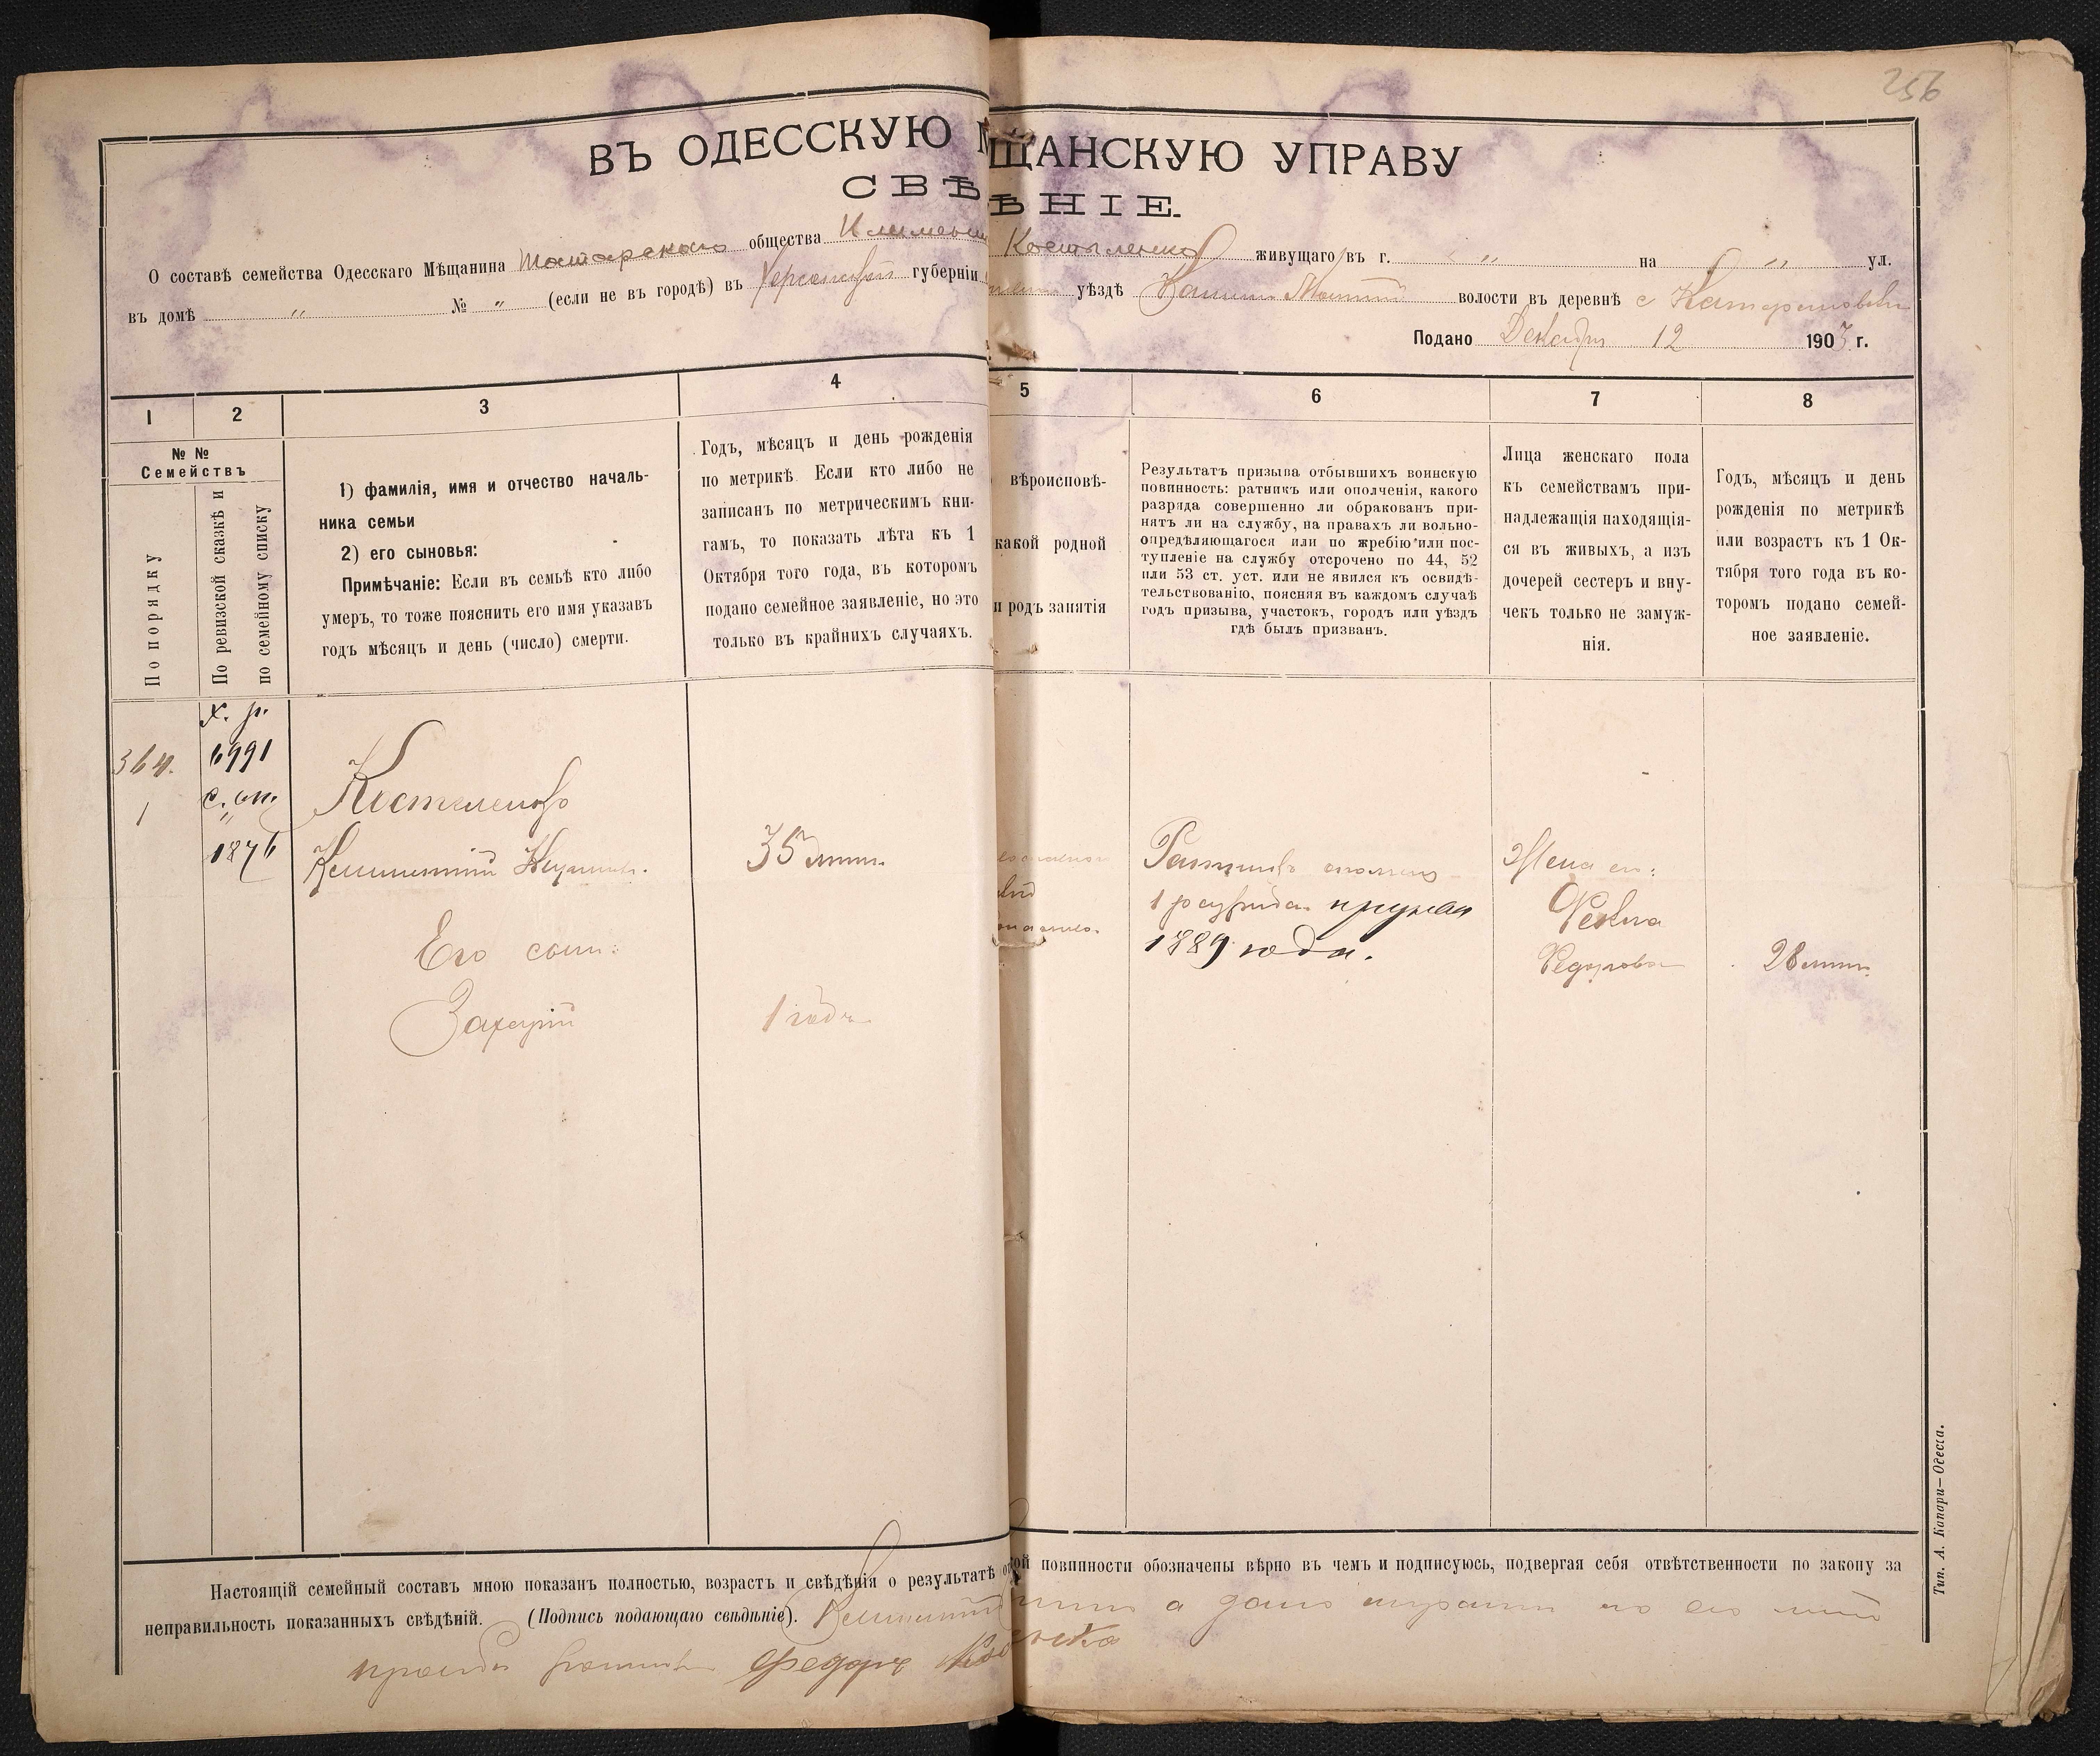 256
ВЪ ОДЕССКУЮ МѢЩАНСКУЮ УПРАВУ
СВѢДѢНІЕ.
О составѣ семейства Одесскаго Мѣщанина Татарскаго общества Климент Костыленко живущаго въ г. " на " ул.
въ домѣ " № " (если не въ городѣ) въ Херсонской губерніи уѣздѣ волости въ деревнѣ с
Подано Декабря 12 1903 г.
1 2 3 4 5 6 7 8
№ №
Семействъ
По порядку
По ревизской сказкѣ и
по семейному списку
1) фамилія, имя и отчество началь-
ника семьи
2) его сыновья:
Примѣчаніе: Если въ семьѣ кто либо
умеръ, то тоже пояснить его имя указавъ
годъ мѣсяцъ и день (число) смерти.
Годъ, мѣсяцъ и день рожденія
по метрикѣ Если кто либо не
записанъ по метрическимъ кни-
гамъ, то показать лѣта къ 1
Октября того года, въ которомъ
подано семейное заявленіе, но это
только въ крайнихъ случаяхъ.
вѣроисповѣ-
какой родной
и родъ занятія
Результатъ призыва отбывшихъ воинскую
повинность: ратникъ или ополченія, какого
разряда совершенно ли обракованъ при-
нятъ ли на службу, на правахъ ли вольно-
опредѣляющагося или по жребію или пос-
тупленіе на службу отсрочено по 44, 52
или 53 ст. уст. или не явился къ освидѣ-
тельствованію, поясняя въ каждомъ случаѣ
годъ призыва, участокъ, городъ или уѣздъ
гдѣ былъ призванъ.
Лица женскаго пола
къ семействамъ при-
надлежащія находящія-
ся въ живыхъ, а изъ
дочерей сестеръ и вну-
чекъ только не замуж-
нія.
Годъ, мѣсяцъ и день
рожденія по метрикѣ
или возрастъ къ 1 Ок-
тября того года въ ко-
торомъ подано семей-
ное заявленіе.
х. р.
364. 6991
1 с. сп.
"
1876
Костыленко
Климентій 35 лѣтъ
Ратникъ ополч
1 разряда призыва
1889 года.
Жена ег:
Фекла
Федорова 28 лѣтъ
Его сынъ:
Захарій 1 годъ
Настоящій семейный составъ мною показанъ полностью, возрастъ и свѣдѣнія о результатѣ повинности обозначены вѣрно въ чемъ и подписуюсь, подвергая себя отвѣтственности по закону за
неправильность показанныхъ свѣдѣній. (Подпись подающаго свѣдѣніе). Климентій а
Федоръ
Тип. А. Капари—Одесса.